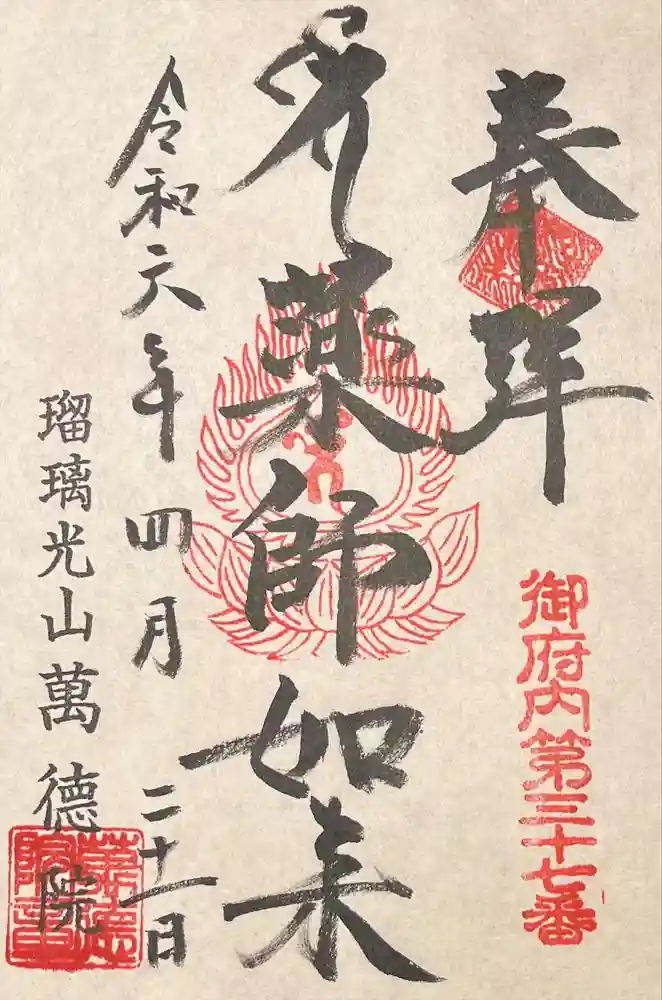 奉拝
御府内第三十七番
薬師如来
令和六年四月二十一日
瑠璃光山萬德院